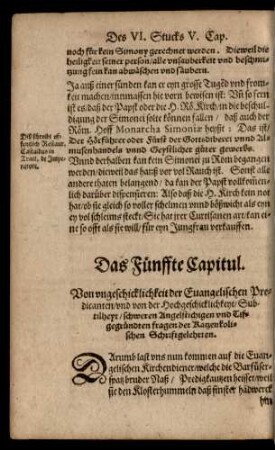 Des VI. Stucks V. Cap.
noch für kein Simony gerechnet werden. Dieweil die
heiligkeit seiner person/alle unsauberkeit und beschmu-
tzung kein kan abwäschen und säubern.
Ja auß einer sünden kan er eyn grosse Tugēd und from-
keit machen/inmassen hie vorn bewisen ist. Uñ so fern
ist es/daß der Papst oder die H. Rō. Kirch in die beschul-
digung der Simonei solte können fallen / daß auch der
Röm. Hoff Monarcha Simoniæ heyßt: Das ist/
Der Hörführer oder Fürst der Gottsdiberei unnd All-
musenhandels unnd Geystlicher güter gewerbs.
Unnd derhalben kan kein Simonei zu Rom begangen
werden/dieweil das hauß vor vol Rauch ist. Sonst alle
andere thaten belangend/ da kan der Papst vollkommen-
lich darüber dispensieren: Also daß die H. Kirch kein not
hat/ob sie gleich so voller schelmen unnd bößwicht als eyn
ey vol schleims steckt: Sie hat jrer Curtisanen art/kan ei-
ne so offt als sie will/ für eyn Jungfrau verkauffen.
Das Fünffte Capitul.
Von ungeschicklichkeit der Euangelischen Pre-
dicanten/und von der Hochgeschicklichkeyt/ Sub-
tilheyt/ schweren
gegründten fragen der Katzenkoli-
schen Schriftgelehrten.
DArumb last uns nun kommen auf die Euan-
gelischen Kirchendiener/welche die Barfüser-
bruder Naß/ Predigkautzen heiset/weil
sie den Klosterhummeln daß finster